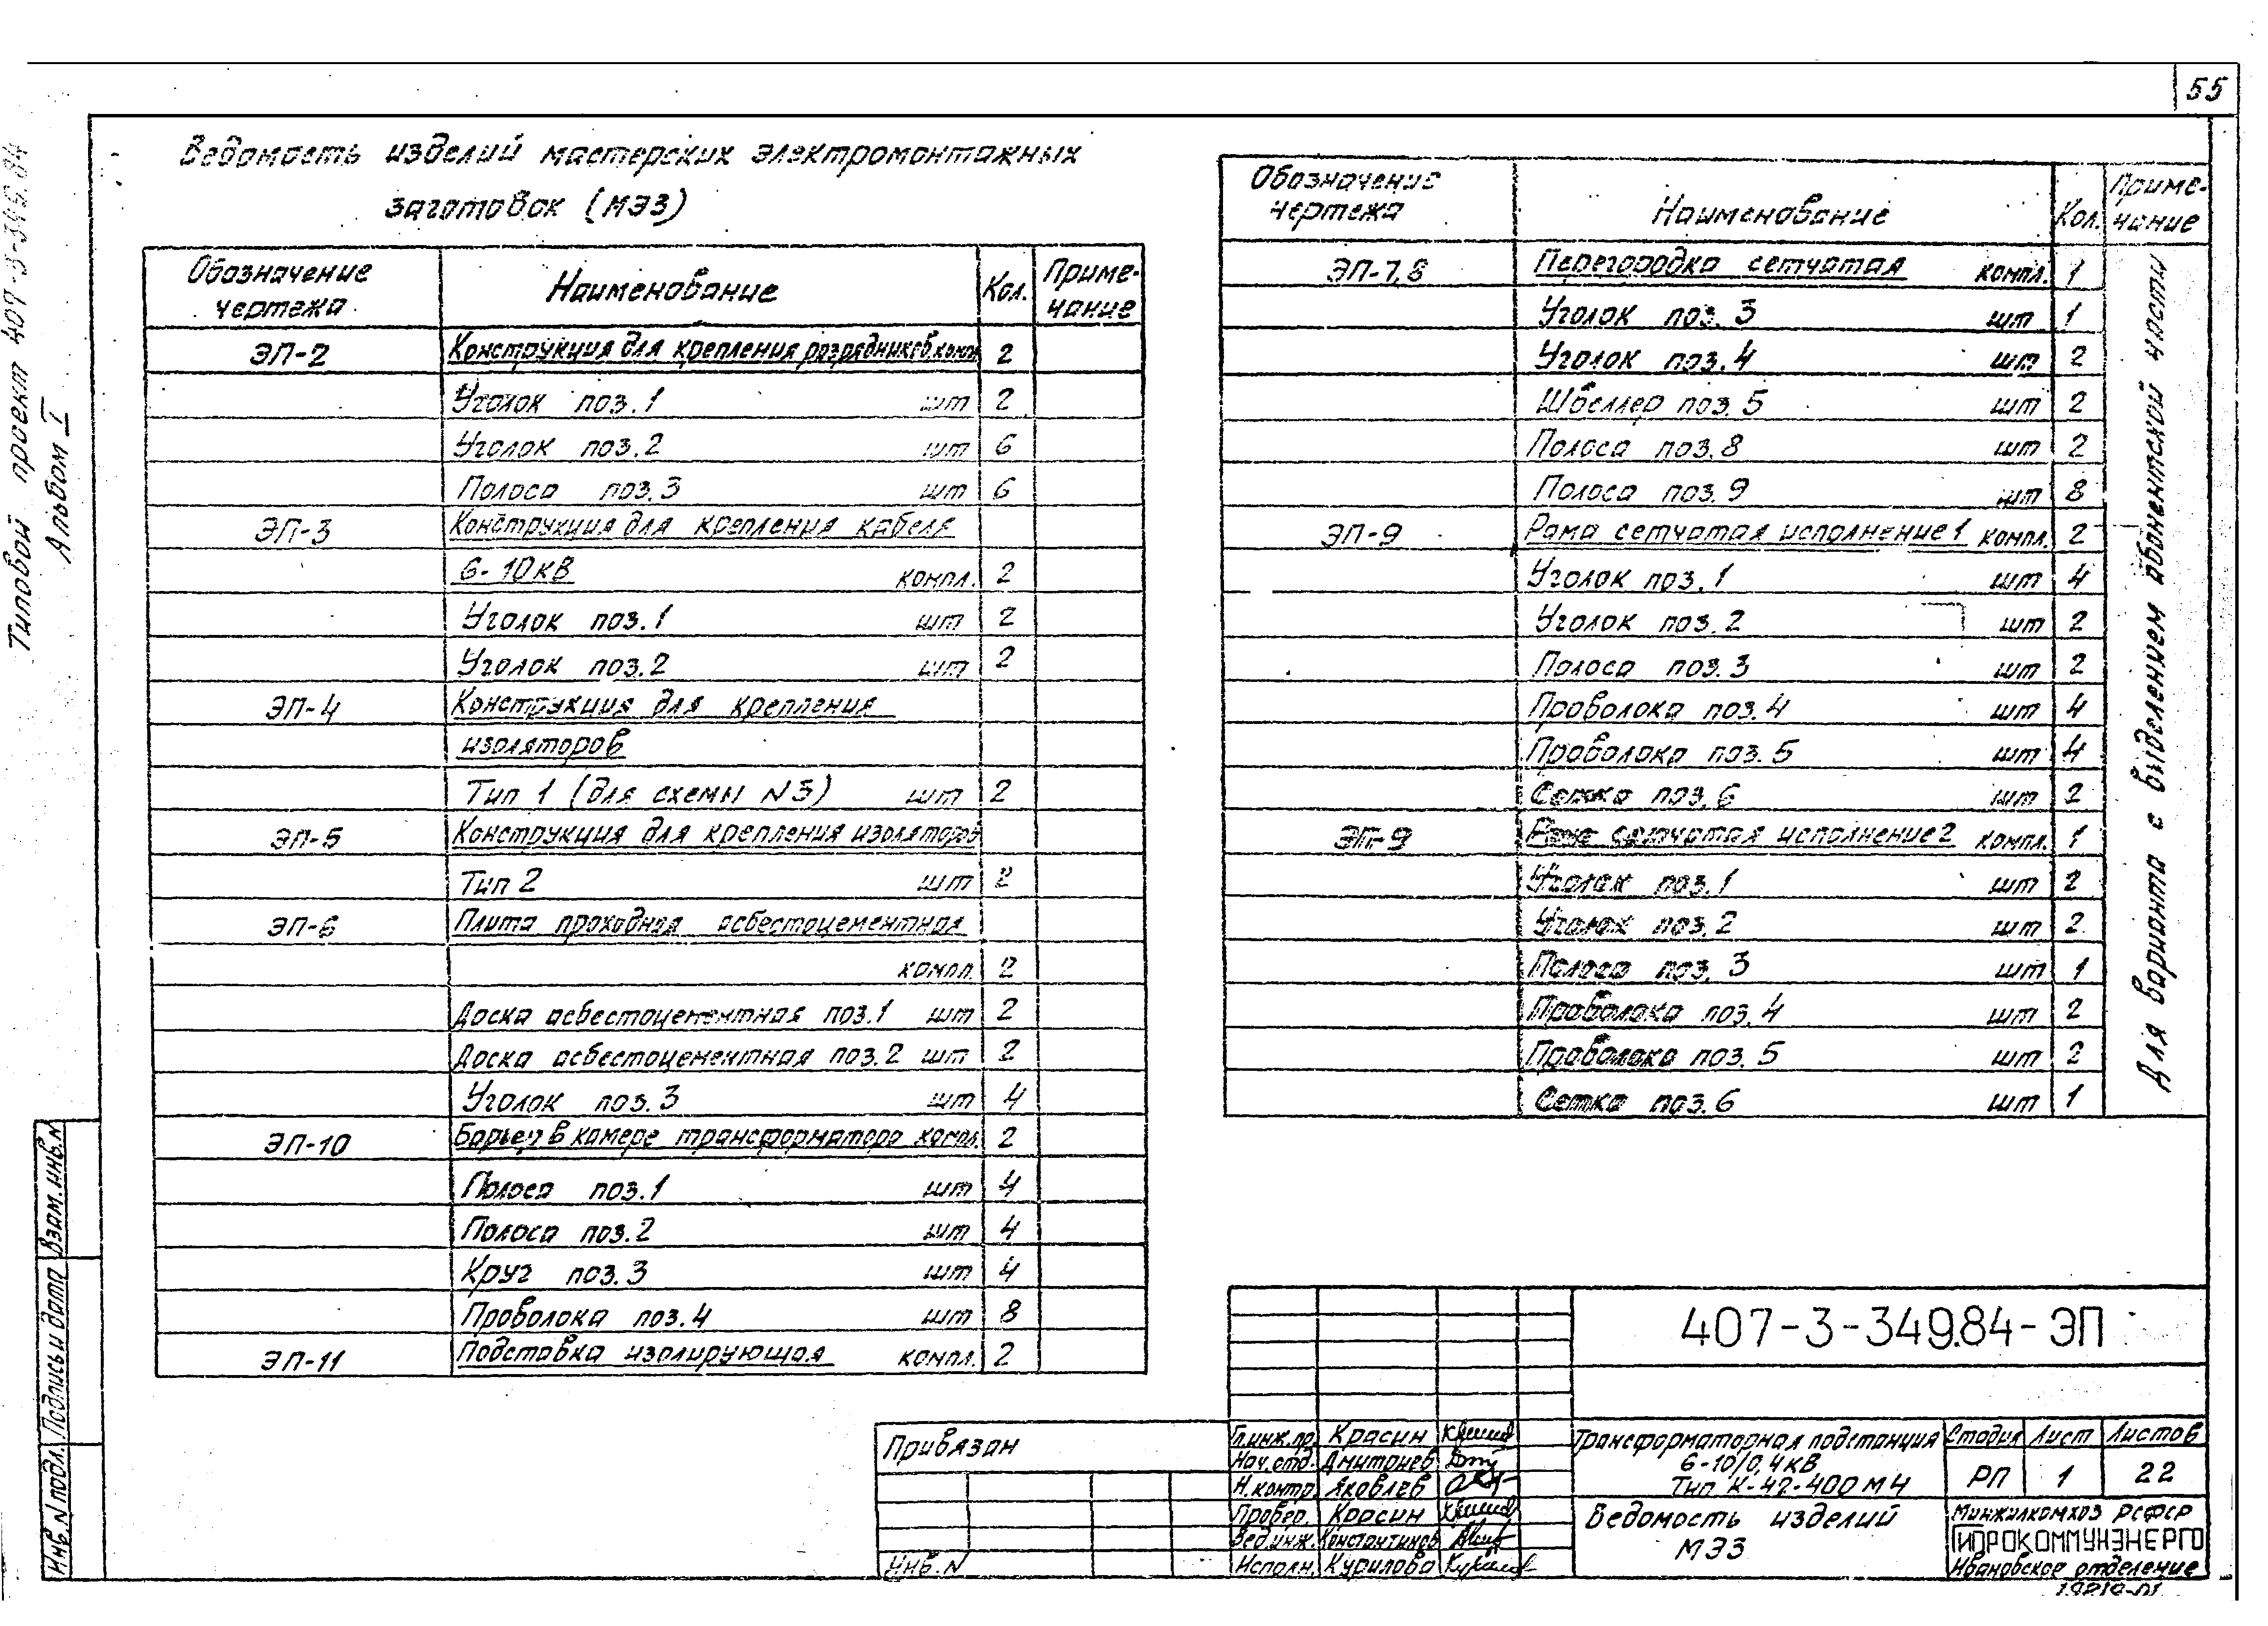 55
Типовой проект 407-3-349.84
Альбом I
Ведомость изделий мастерских электромонтажных
заготовок (МЭЗ)
Обозначение чертежа Наименование Кол. Примечание
ЭП-2 Конструкция для крепления разрядников, компл 2
Уголок поз.1 шт 2
Уголок поз.2 шт 6
Полоса поз.3 шт 6
ЭП-3 Конструкция для крепления кабеля
6-10кВ компл. 2
Уголок поз.1 шт 2
Уголок поз.2 шт 2
ЭП-4 Конструкция для крепления
изоляторов
Тип 1 (для схемы N3) шт 2
ЭП-5 Конструкция для крепления изоляторов
Тип 2 шт 2
ЭП-6 Плита проходная асбестоцементная
компл. 2
Доска асбестоцементная поз.1 шт 2
Доска асбестоцементная поз.2 шт 2
Уголок поз.3 шт 4
ЭП-10 Барьер в камере трансформатора компл. 2
Полоса поз.1 шт 4
Полоса поз.2 шт 4
Круг поз.3 шт 4
Проволока поз.4 шт 8
ЭП-11 Подставка изолирующая компл. 2
Обозначение чертежа Наименование Кол. Примечание
ЭП-7,8 Перегородка сетчатая компл. 1
Уголок поз.3 шт 1
Уголок поз.4 шт 2
Швеллер поз.5 шт 2
Полоса поз.8 шт 2
Полоса поз.9 шт 8
ЭП-9 Рама сетчатая исполнение 1 компл. 2
Уголок поз.1 шт 4
Уголок поз.2 шт 2
Полоса поз.3 шт 2
Проволока поз.4 шт 4
Проволока поз.5 шт 4
Сетка поз.6 шт 2
ЭП-9 Рама сетчатая исполнение 2 компл. 1
Уголок поз.1 шт 2
Уголок поз.2 шт 2
Полоса поз.3 шт 1
Проволока поз.4 шт 2
Проволока поз.5 шт 2
Сетка поз.6 шт 1
Для варианта с выделением абонентской части
407-3-349.84-ЭП
Привязан
Инв.N
Гл.инж.пр. Красин
Нач.отд. Дмитриев
Н.контр Яковлев
Провер. Красин
Вед.инж. Константинов
Исполн. Курилова
Трансформаторная подстанция
6-10/0,4кВ
Тип К-42-400М4
Стадия Лист Листов
РП 1 22
Ведомость изделий
МЭЗ
Минжилкомхоз РСФСР
ГИПРОКОММУНЭНЕРГО
Ивановское отделение
Взам.инв.N
Подпись и дата
Инв.N подл.